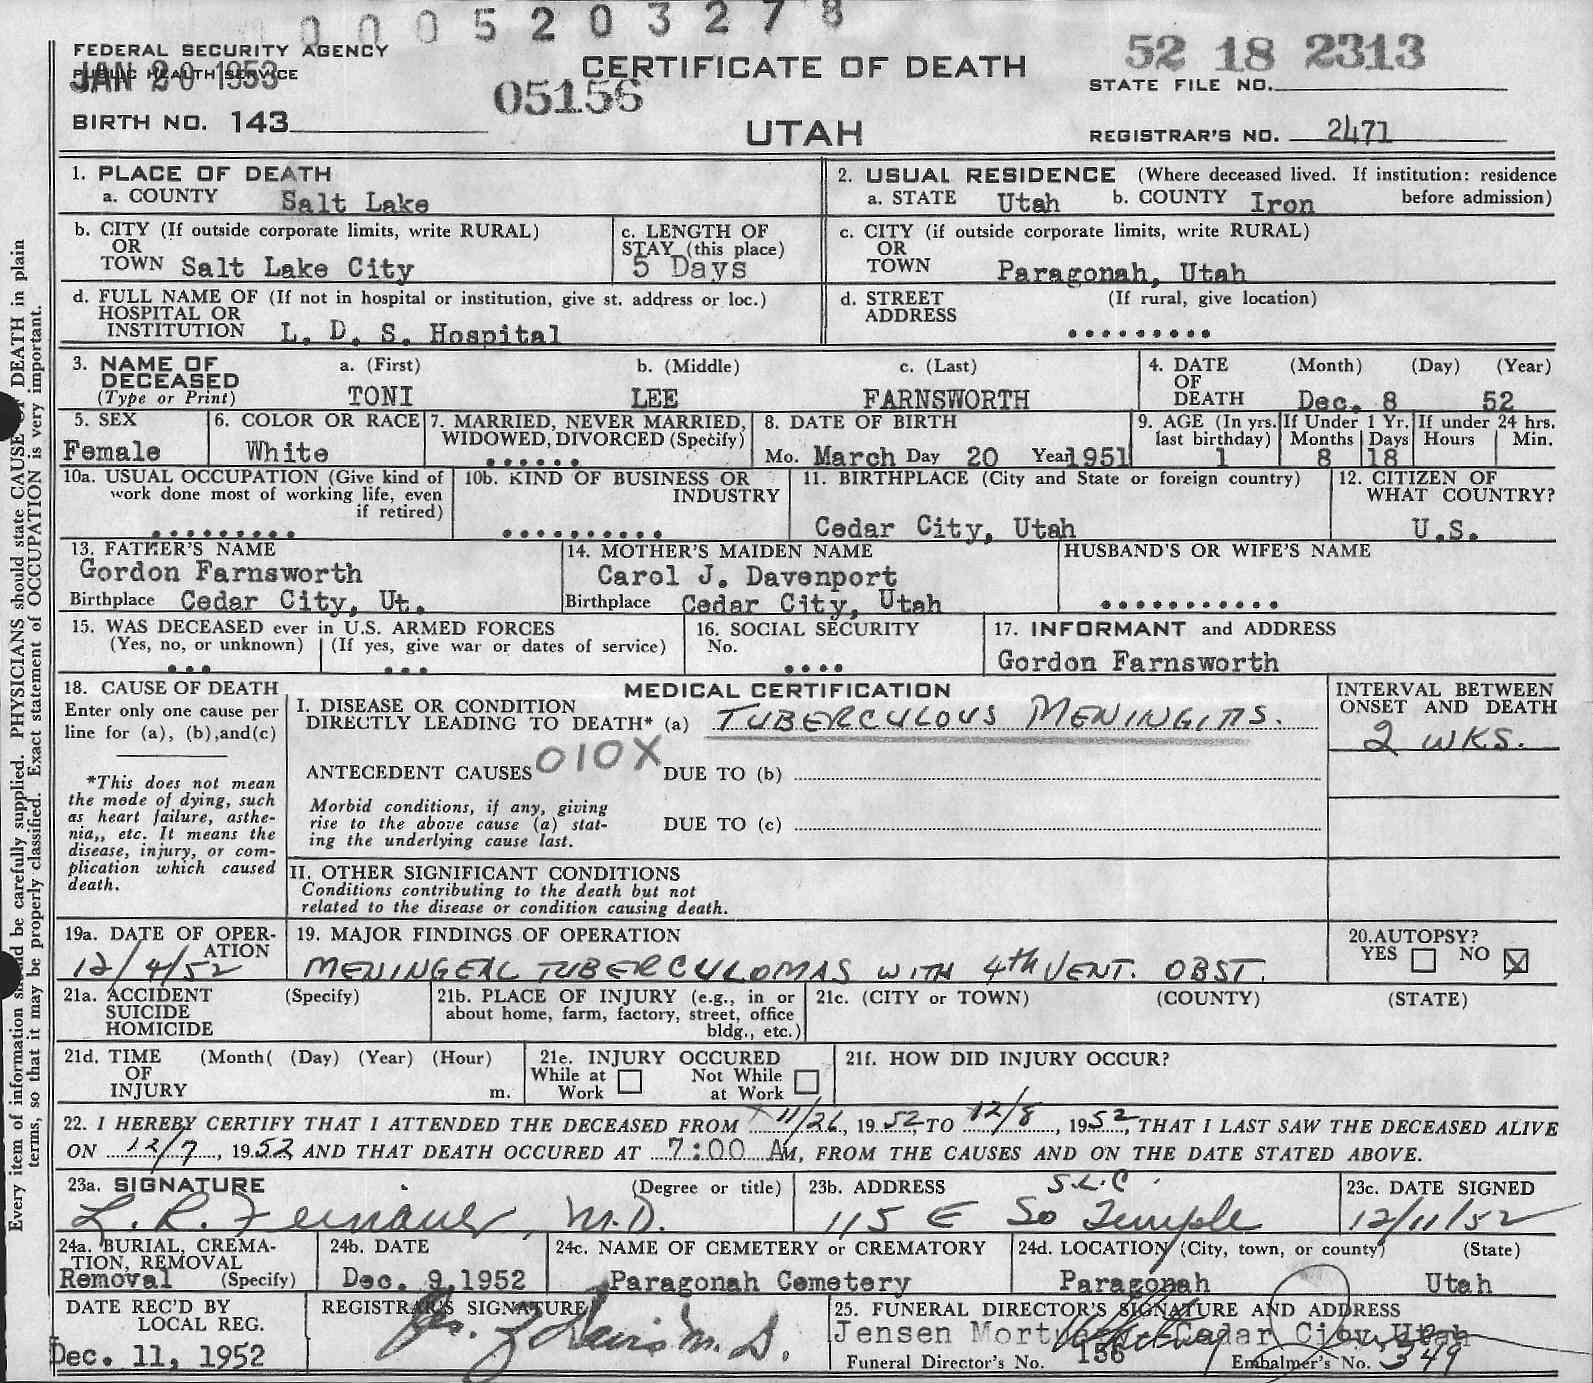 0005203278
FEDERAL SECURITY AGENCY
PUBLIC HEALTH SERVICE
JAN 20 1953
05156
CERTIFICATE OF DEATH
UTAH
52 18 2313
STATE FILE NO.
BIRTH NO. 143
REGISTRAR'S NO. 2471
1. PLACE OF DEATH
a. COUNTY Salt Lake
2. USUAL RESIDENCE (Where deceased lived. If institution: residence before admission)
a. STATE Utah b. COUNTY Iron
b. CITY (If outside corporate limits, write RURAL)
OR
TOWN Salt Lake City
c. LENGTH OF
STAY (this place)
5 Days
c. CITY (if outside corporate limits, write RURAL)
OR
TOWN Paragonah, Utah
d. FULL NAME OF (If not in hospital or institution, give st. address or loc.)
HOSPITAL OR
INSTITUTION L. D. S. Hospital
d. STREET (If rural, give location)
ADDRESS .........
3. NAME OF
DECEASED
(Type or Print)
a. (First) b. (Middle) c. (Last)
TONI LEE FARNSWORTH
4. DATE (Month) (Day) (Year)
OF
DEATH Dec. 8 52
5. SEX
Female
6. COLOR OR RACE
White
7. MARRIED, NEVER MARRIED,
WIDOWED, DIVORCED (Specify)
......
8. DATE OF BIRTH
Mo. March Day 20 Year 1951
9. AGE (In yrs. last birthday)
1
If Under 1 Yr.
Months Days
8 18
If under 24 hrs.
Hours Min.
10a. USUAL OCCUPATION (Give kind of
work done most of working life, even
if retired)
.........
10b. KIND OF BUSINESS OR
INDUSTRY
..........
11. BIRTHPLACE (City and State or foreign country)
Cedar City, Utah
12. CITIZEN OF
WHAT COUNTRY?
U.S.
13. FATHER'S NAME
Gordon Farnsworth
Birthplace Cedar City, Ut.
14. MOTHER'S MAIDEN NAME
Carol J. Davenport
Birthplace Cedar City, Utah
HUSBAND'S OR WIFE'S NAME
...........
15. WAS DECEASED ever in U.S. ARMED FORCES
(Yes, no, or unknown) (If yes, give war or dates of service)
... ...
16. SOCIAL SECURITY
No.
....
17. INFORMANT and ADDRESS
Gordon Farnsworth
18. CAUSE OF DEATH
Enter only one cause per
line for (a), (b),and(c)
*This does not mean
the mode of dying, such
as heart failure, asthe-
nia,, etc. It means the
disease, injury, or com-
plication which caused
death.
MEDICAL CERTIFICATION
I. DISEASE OR CONDITION
DIRECTLY LEADING TO DEATH* (a) TUBERCULOUS MENINGITIS.
010X
ANTECEDENT CAUSES DUE TO (b)
Morbid conditions, if any, giving
rise to the above cause (a) stat-
ing the underlying cause last.
DUE TO (c)
II. OTHER SIGNIFICANT CONDITIONS
Conditions contributing to the death but not
related to the disease or condition causing death.
INTERVAL BETWEEN
ONSET AND DEATH
2 WKS.
19a. DATE OF OPER-
ATION
12/4/52
19. MAJOR FINDINGS OF OPERATION
MENINGEAL TUBERCULOMAS WITH 4th VENT. OBST.
20. AUTOPSY?
YES NO X
21a. ACCIDENT (Specify)
SUICIDE
HOMICIDE
21b. PLACE OF INJURY (e.g., in or
about home, farm, factory, street, office
bldg., etc.)
21c. (CITY or TOWN) (COUNTY) (STATE)
21d. TIME (Month( (Day) (Year) (Hour)
OF
INJURY m.
21e. INJURY OCCURED
While at Work Not While at Work
21f. HOW DID INJURY OCCUR?
22. I HEREBY CERTIFY THAT I ATTENDED THE DECEASED FROM 11/26, 1952, TO 12/8, 1952, THAT I LAST SAW THE DECEASED ALIVE
ON 12/7, 1952, AND THAT DEATH OCCURED AT 7:00 AM, FROM THE CAUSES AND ON THE DATE STATED ABOVE.
23a. SIGNATURE (Degree or title)
L. R. Feinauer, M.D.
23b. ADDRESS S.L.C.
115 E So Temple
23c. DATE SIGNED
12/11/52
24a. BURIAL, CREMA-
TION, REMOVAL
Removal (Specify)
24b. DATE
Dec. 9, 1952
24c. NAME OF CEMETERY or CREMATORY
Paragonah Cemetery
24d. LOCATION (City, town, or county) (State)
Paragonah Utah
DATE REC'D BY
LOCAL REG.
Dec. 11, 1952
REGISTRAR'S SIGNATURE
M.D.
25. FUNERAL DIRECTOR'S SIGNATURE AND ADDRESS
Jensen Mortuary Cedar City Utah
Funeral Director's No. 156 Embalmer's No. 349
Every item of information should be carefully supplied. PHYSICIANS should state CAUSE OF DEATH in plain
terms, so that it may be properly classified. Exact statement of OCCUPATION is very important.